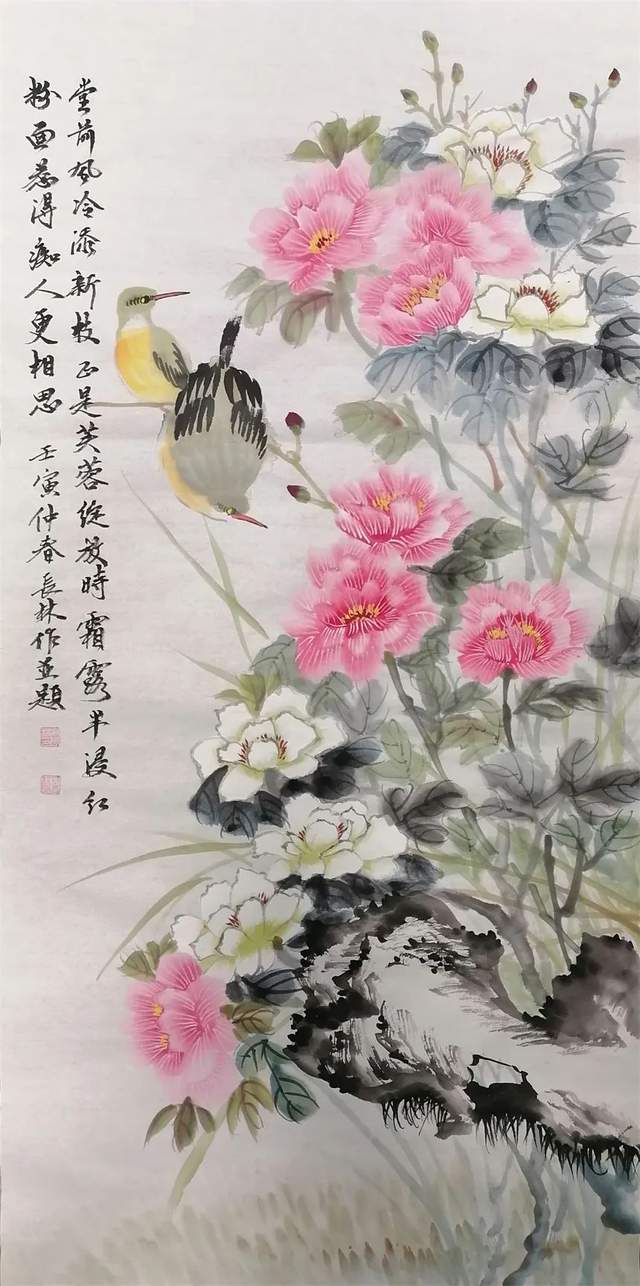 堂前風冷添新枝正是芙蓉綻放時霜露半浸红
粉面惹得痴人更相思 壬寅仲春長林作並題